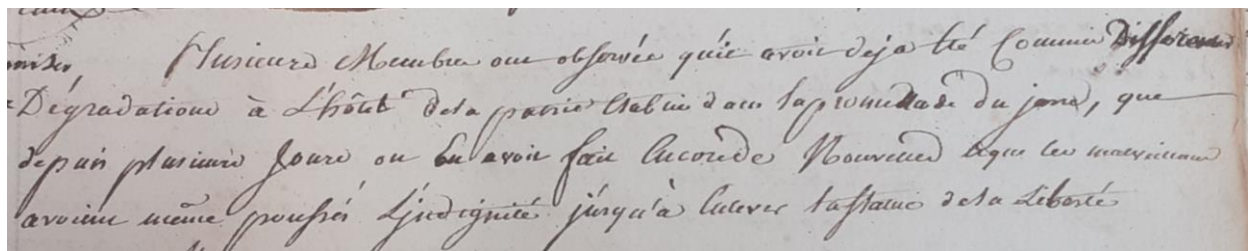 Plusieurs Membres ont observée qu'il avoit deja été Commis Differentes
Dégradations à L'hôtel dela patrie Etablie dans lapromenade du jard, que
depuis plusieurs Jours on En avoit fait Encore de Nouvelles & que les malveillans
avoient même poussés L'indignité jusqu'à Enlever lastatue dela Liberté